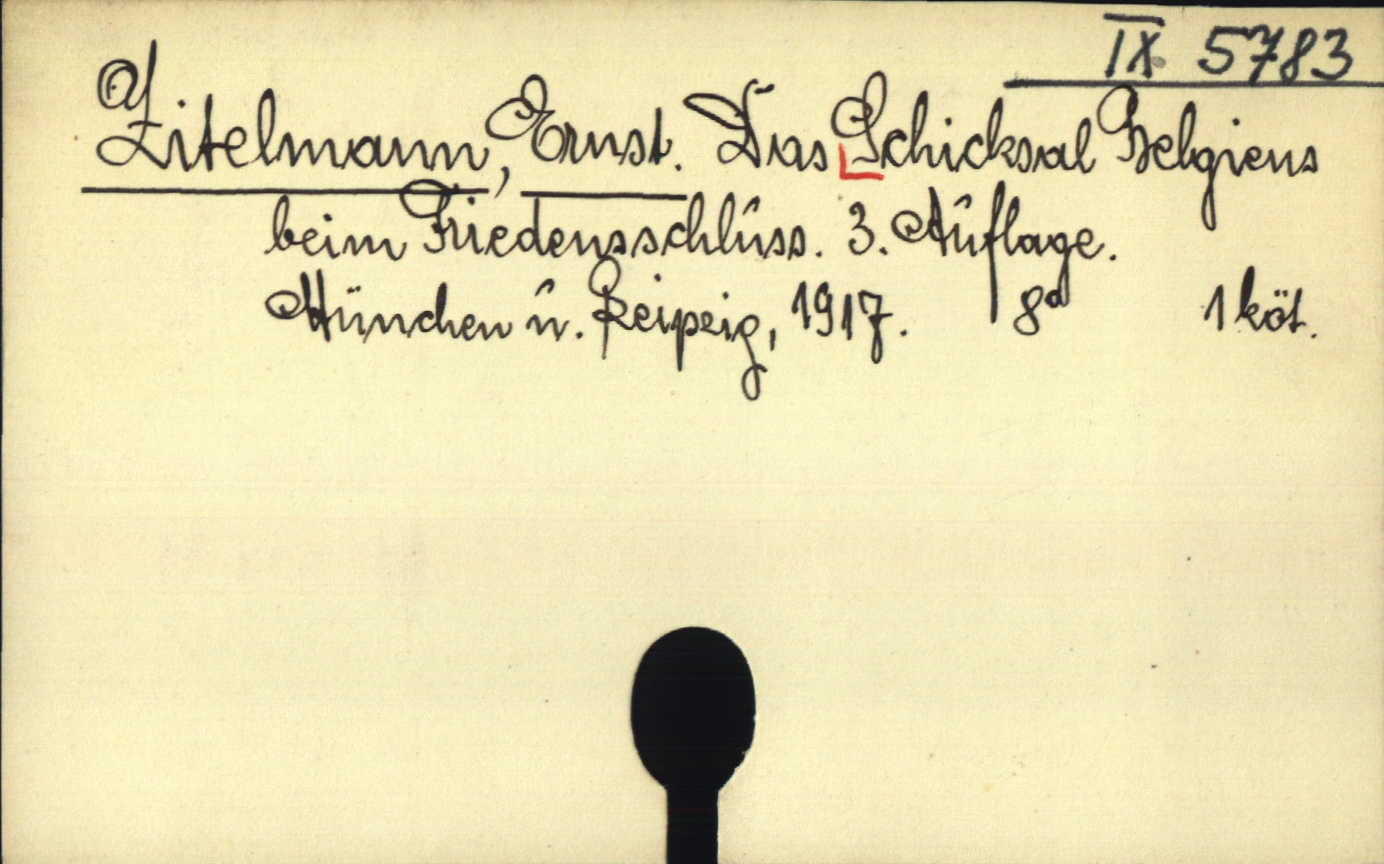 IX 5783
Zitelmann, Ernst. Das Schicksal Belgiens
beim Friedensschluss. 3. Auflage.
München u. Leipzig, 1917. 8° 1 köt.